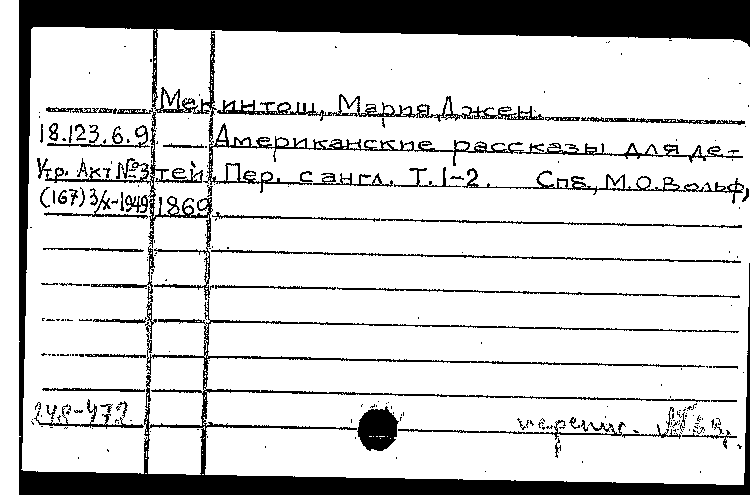 Мекинтош, Мария Джен.
18.123.6.9. Американские рассказы для де-
Утр. Акт №3 тей. Пер. с англ. Т. 1-2. Спб., М.О. Вольф,
(167) 3/X-1949 1869.
248-472 перепис.